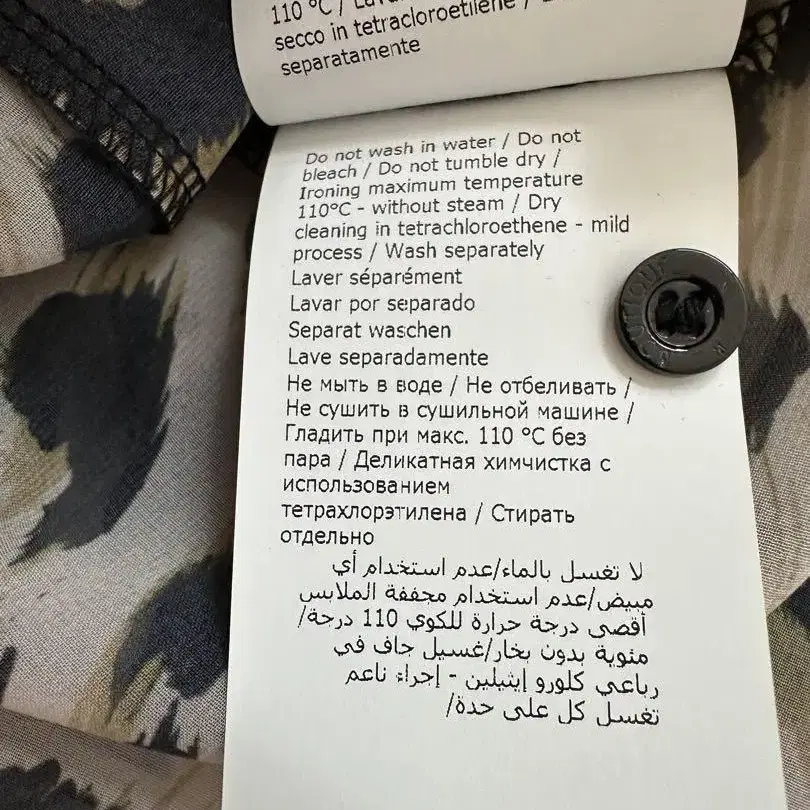 110 °C /
secco in tetracloroetilene /
separatamente
Do not wash in water / Do not
bleach / Do not tumble dry /
Ironing maximum temperature
110°C - without steam / Dry
cleaning in tetrachloroethene - mild
process / Wash separately
Laver séparément
Lavar por separado
Separat waschen
Lave separadamente
Не мыть в воде / Не отбеливать /
Не сушить в сушильной машине /
Гладить при макс. 110 °C без
пара / Деликатная химчистка с
использованием
тетрахлорэтилена / Стирать
отдельно
لا تغسل بالماء/عدم استخدام أي
مبيض/عدم استخدام مجففة الملابس
أقصى درجة حرارة للكوي 110 درجة/
مئوية بدون بخار/غسيل جاف في
رباعي كلورو إيثيلين - إجراء ناعم
تغسل كل على حدة/